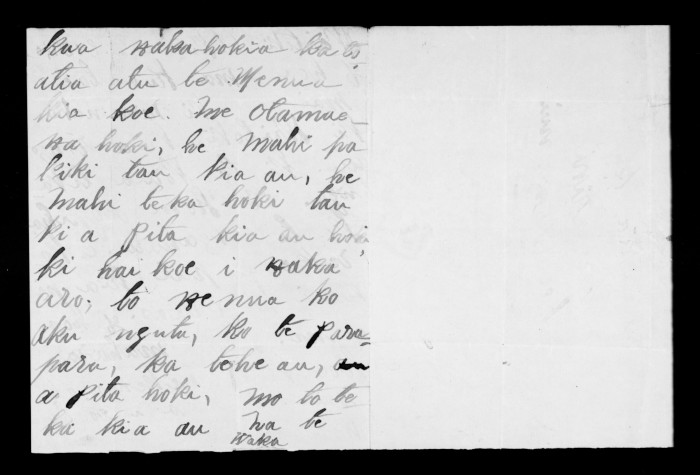 kua waka hokia ka to
atia atu te Wenua
kia koe. me Otamae-
wa hoki, he Mahi pa
kiki tau kia au, he
Mahi teka hoki tau
ki a Pita kia au hoki
ki hai koe i waka
aro, to wenua ko
aku ngutu, ko te para-
para, ka tohe au,
a Pita hoki, mo to te-
ka kia au na te
waka